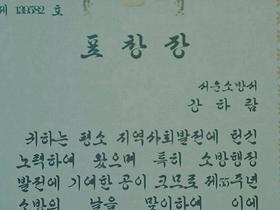 제 139582 호
표창장
서울소방서
강하람
귀하는 평소 지역사회발전에 헌신
노력하여 왔으며 특히 소방행정
발전에 기여한 공이 크므로 제55주년
소방의 날을 맞이하여 이에